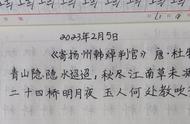 2023年2月5日
《寄扬州韩绰判官》唐·杜牧
青山隐隐水迢迢，秋尽江南草未
二十四桥明月夜 玉人何处教吹